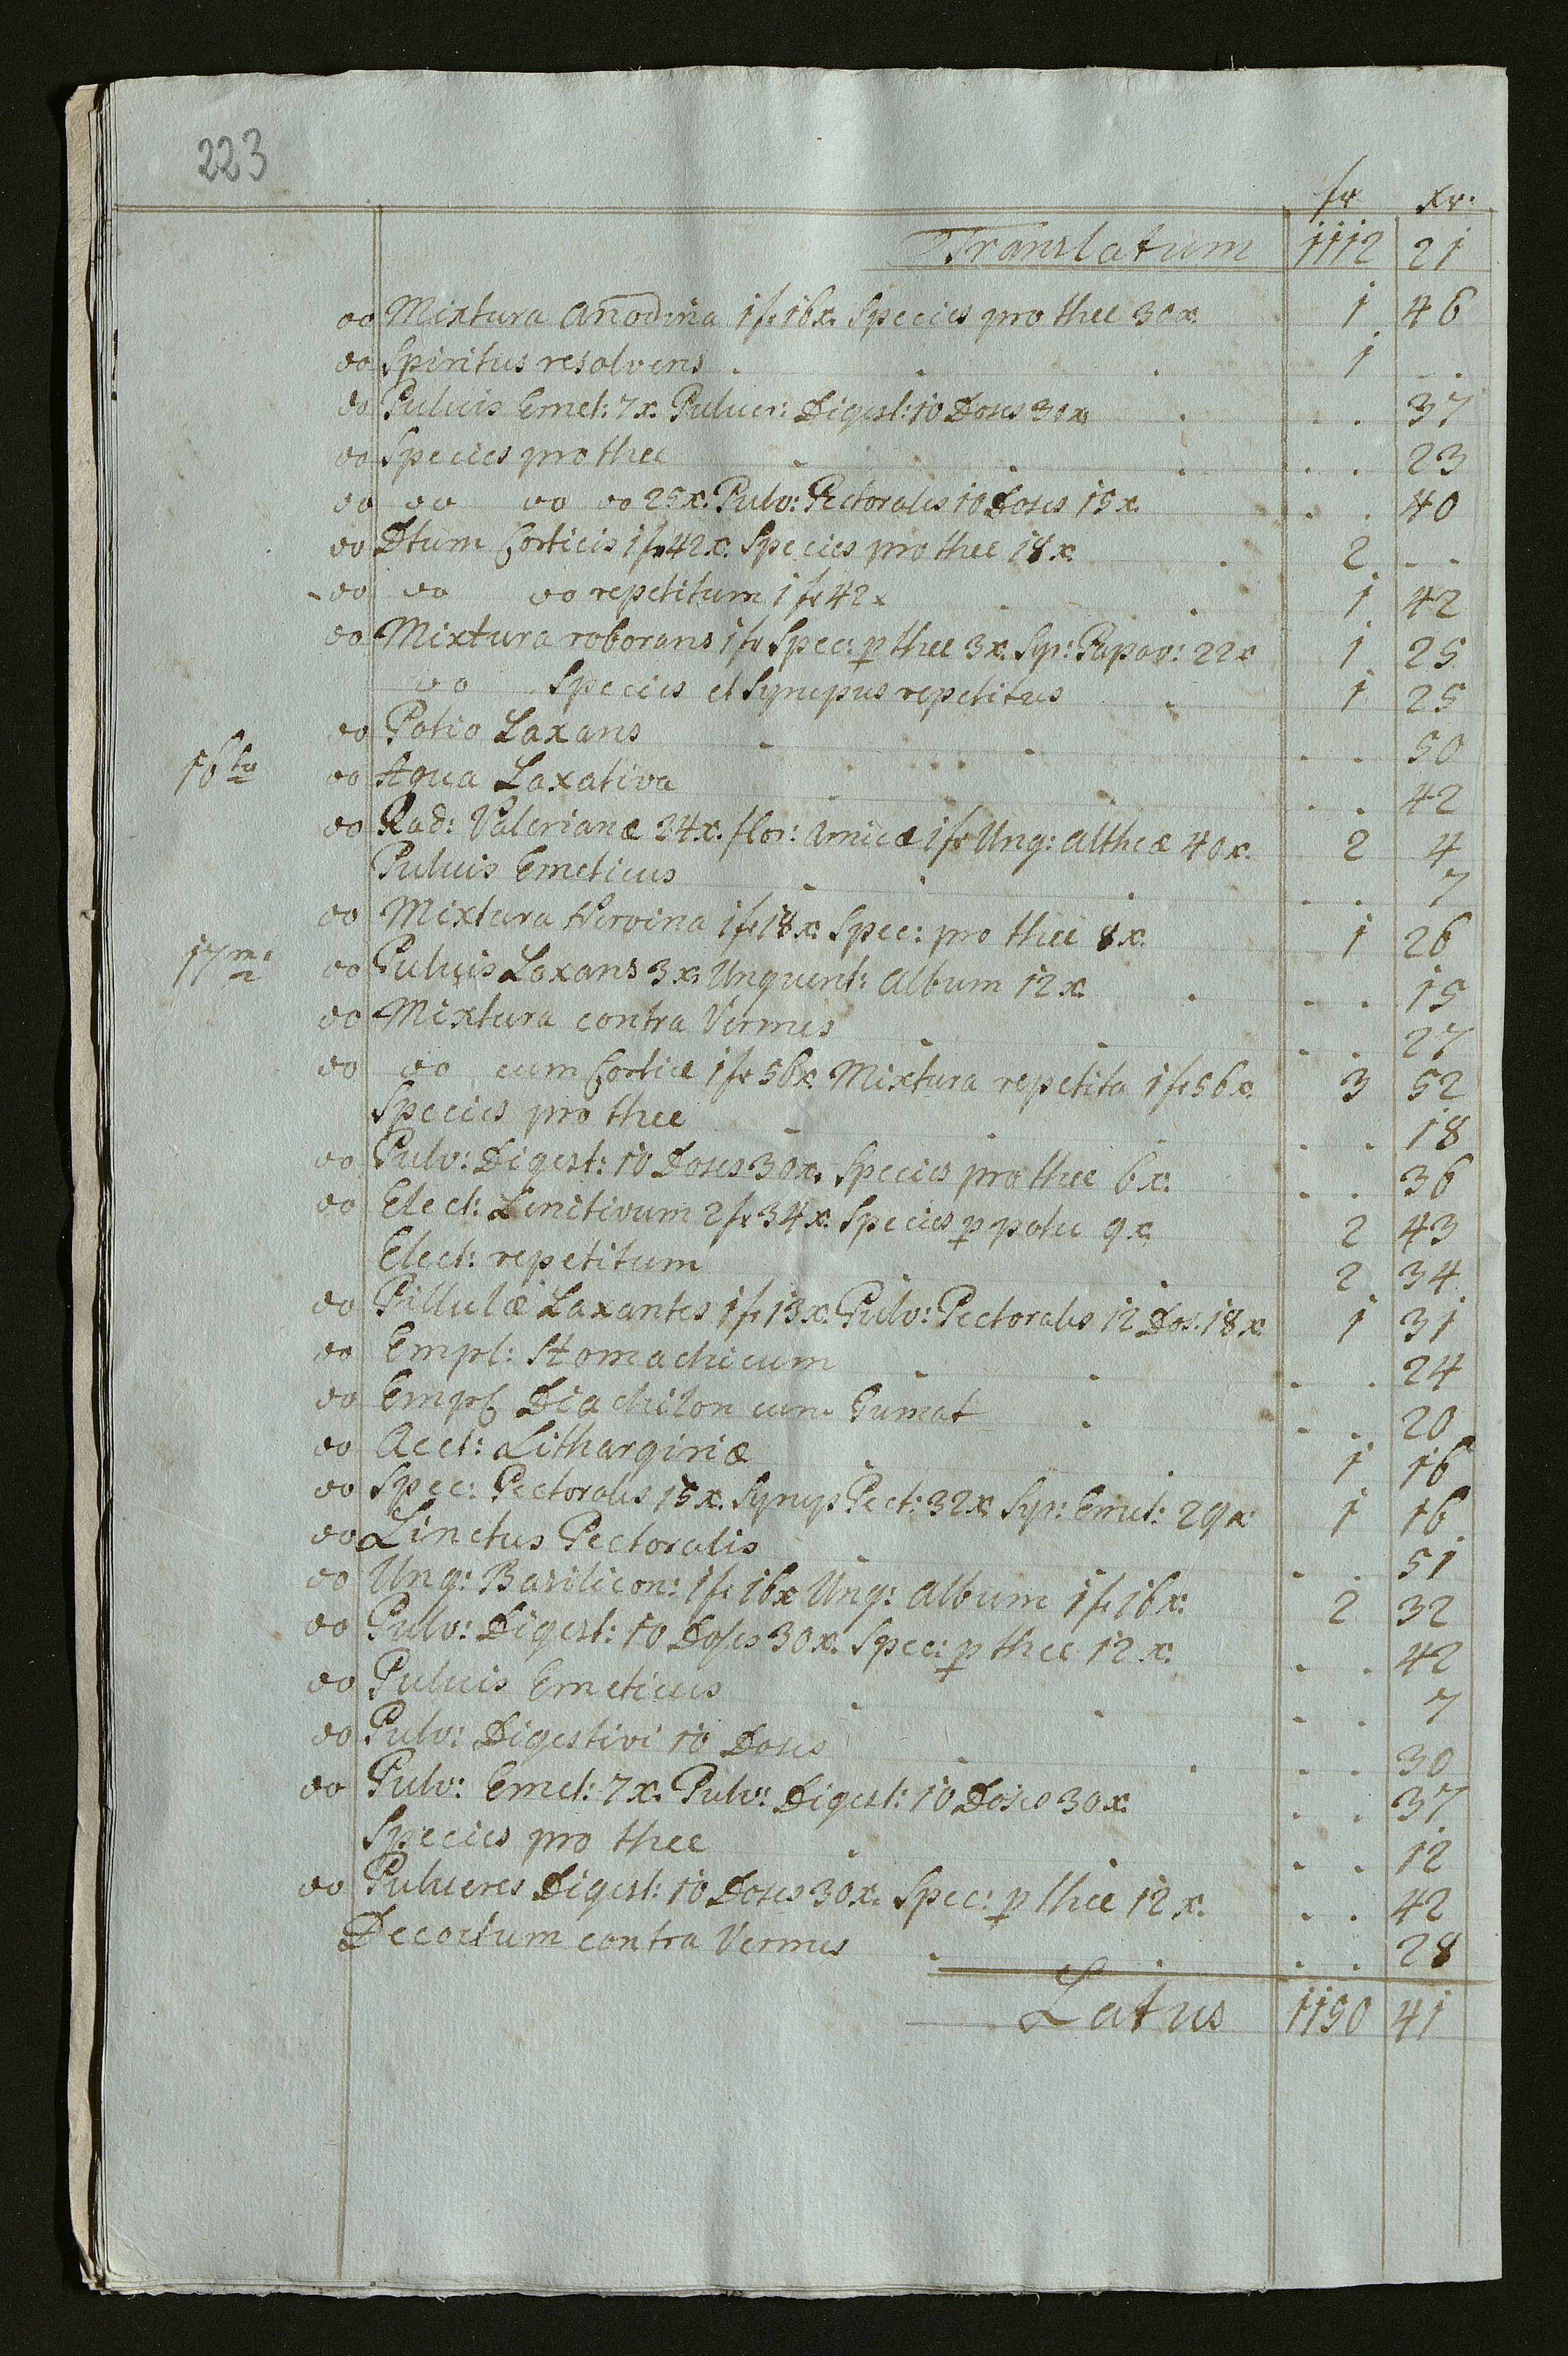 223
fr xr.
Translatum 1112 21
do Mixtura anodina 1 fr 16 x. Species pro thee 30 x. 1 46
do Spiritus resolvens 1
do Pulvis Emet: 7 x. Pulver: Digest: 10 Doses 30 x. 37
do Species pro thee 23
do do do do 25 x. Pulv: Pectoralis 10 Doses 15 x. 40
do Dtum Corticis 1 fr 42 x. Species pro thee 18 x. 2
do do do repetitum 1 fr 42 x 1 42
do Mixtura roborans 1 fr Spec: p thee 3 x. Syr: Papav: 22 x 1 25
do Species et Syrupus repetitus 1 25
do Potio Laxans 50
16 ta do Aqua Laxativa 42
do Rad: Valerianæ 24 x. flor: Arnicæ 1 fr Ung: altheæ 40 x. 2 4
Pulvis Emeticus 7
do Mixtura Nervina 1 fr 18 x. Spec: pro thee 8 x. 1 26
17 ma do Pulvis Laxans 3 x. Unguent: album 12 x. 15
do Mixtura contra Vermes 27
do do cum Cortice 1 fr 56 x. Mixtura repetita 1 fr 56 x. 3 52
Species pro thee 18
do Pulv: Digest: 10 Doses 30 x. Species pro thee 6 x. 36
do Elect: Lenitivum 2 fr 34 x. Species p potu 9 x. 2 43
Elect: repetitum 2 34
do Pillulæ Laxantes 1 fr 13 x. Pulv: Pectoralis 12 Dos. 18 x. 1 31
do Empl: Stomachicum 24
do Empl Diachilon cum Gumat 20
do Acet: Lithargiriæ 1 16
do Spec: Pectoralis 15 x. Syrup Pect: 32 x. Syr: Emet: 29 x 1 16
do Linctus Pectoralis 51
do Ung: Basilicon: 1 fr 16 x Ung: album 1 fr 16 x. 2 32
do Pulv: Digest: 10 Doses 30 x. Spec: p thee 12 x. 42
do Pulvis Emeticus 7
do Pulv: Digestivi 10 Doses 30
do Pulv: Emet: 7 x. Pulv: Digest: 10 Doses 30 x. 37
Species pro thee 12
do Pulveres Digest: 10 Doses 30 x. Spec: p thee 12 x. 42
Decoctum contra Vermes 28
Latus 1150 41